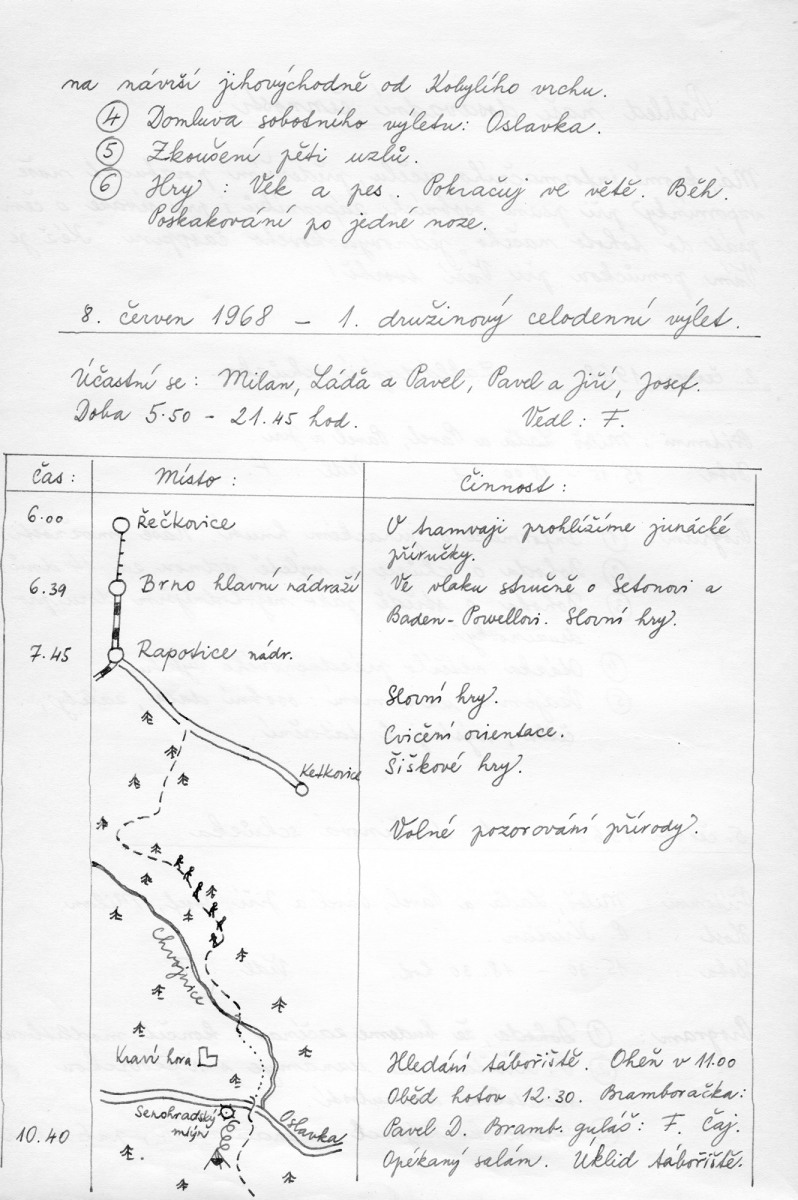 na návrší jihovýchodně od Kobylího vrchu.
④ Domluva sobotního výletu: Oslavka.
⑤ Zkoušení pěti uzlů.
⑥ Hry: Věk a pes. Pokračuj ve větě. Běh.
Poskakování po jedné noze.
8. červen 1968 – 1. družinový celodenní výlet.
Účastní se: Milan, Láďa a Pavel, Pavel a Jiří, Josef.
Doba 5.50 – 21.45 hod. Vedl: F.
Čas: Místo: Činnost:
6.00 Řečkovice V tramvaji prohlížíme junácké
příručky.
6.39 Brno hlavní nádraží Ve vlaku stručně o Setonovi a
Baden-Powellovi. Slovní hry.
7.45 Rapotice nádr.
Slovní hry.
Cvičení orientace.
Ketkovice Šiškové hry.
Volné pozorování přírody.
Chvojnice
Kraví hora Hledání tábořiště. Oheň v 11.00
Oběd hotov 12.30. Bramboračka:
Senohradský
mlýn Oslavka Pavel D. Bramb. guláš: F. Čaj.
10.40 Opékaný salám. Úklid tábořiště.